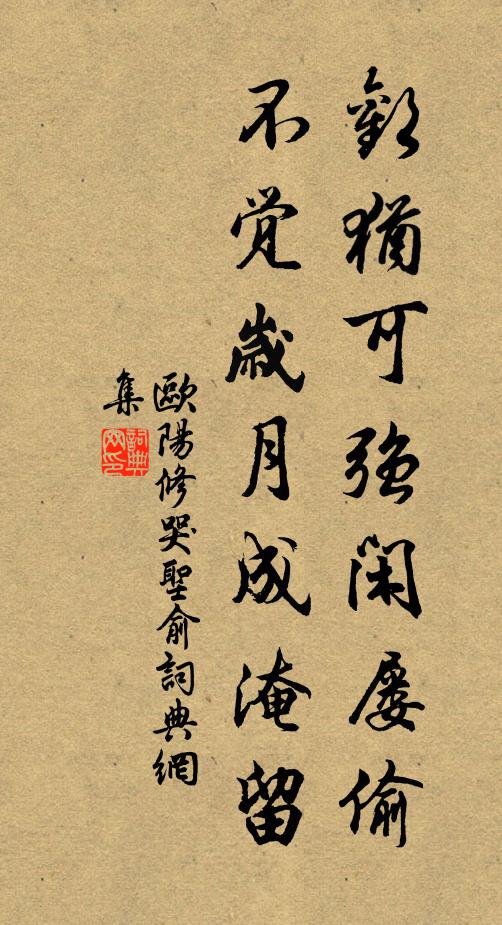 歡猶可強閑屢偷
不覚歲月成淹留
歐陽修哭聖俞詞典網
集
詞典網印